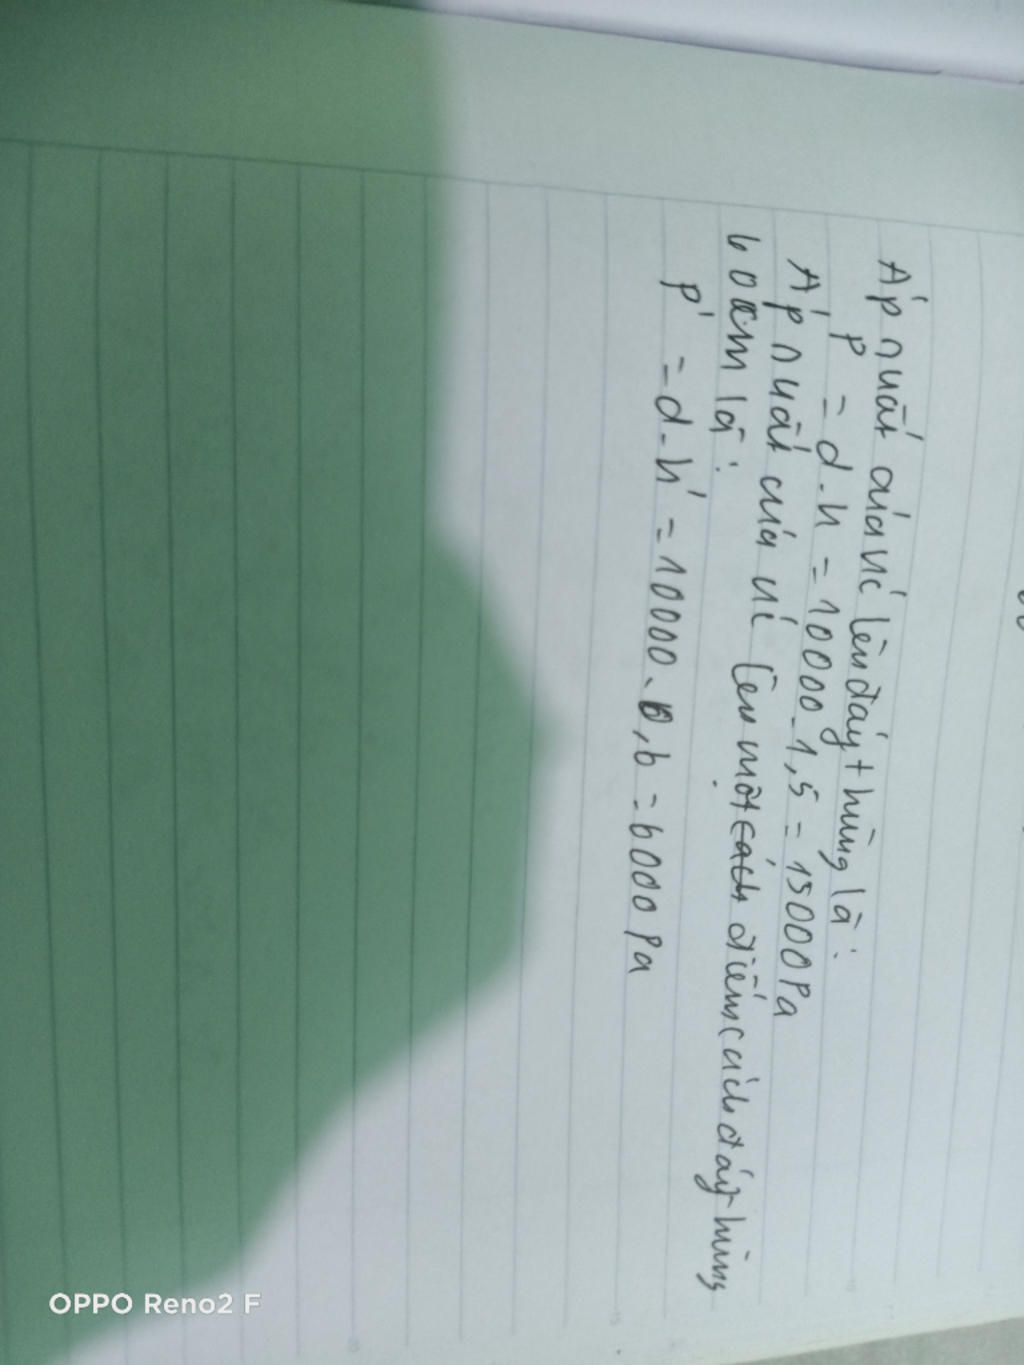 Áp suất của nc lên đáy thùng là:
P = d.h = 10000.1,5 = 15000Pa
Áp suất của nc lên một điểm cách đáy thùng
60cm là:
P' = d.h' = 10000.0,6 = 6000Pa
OPPO Reno2 F